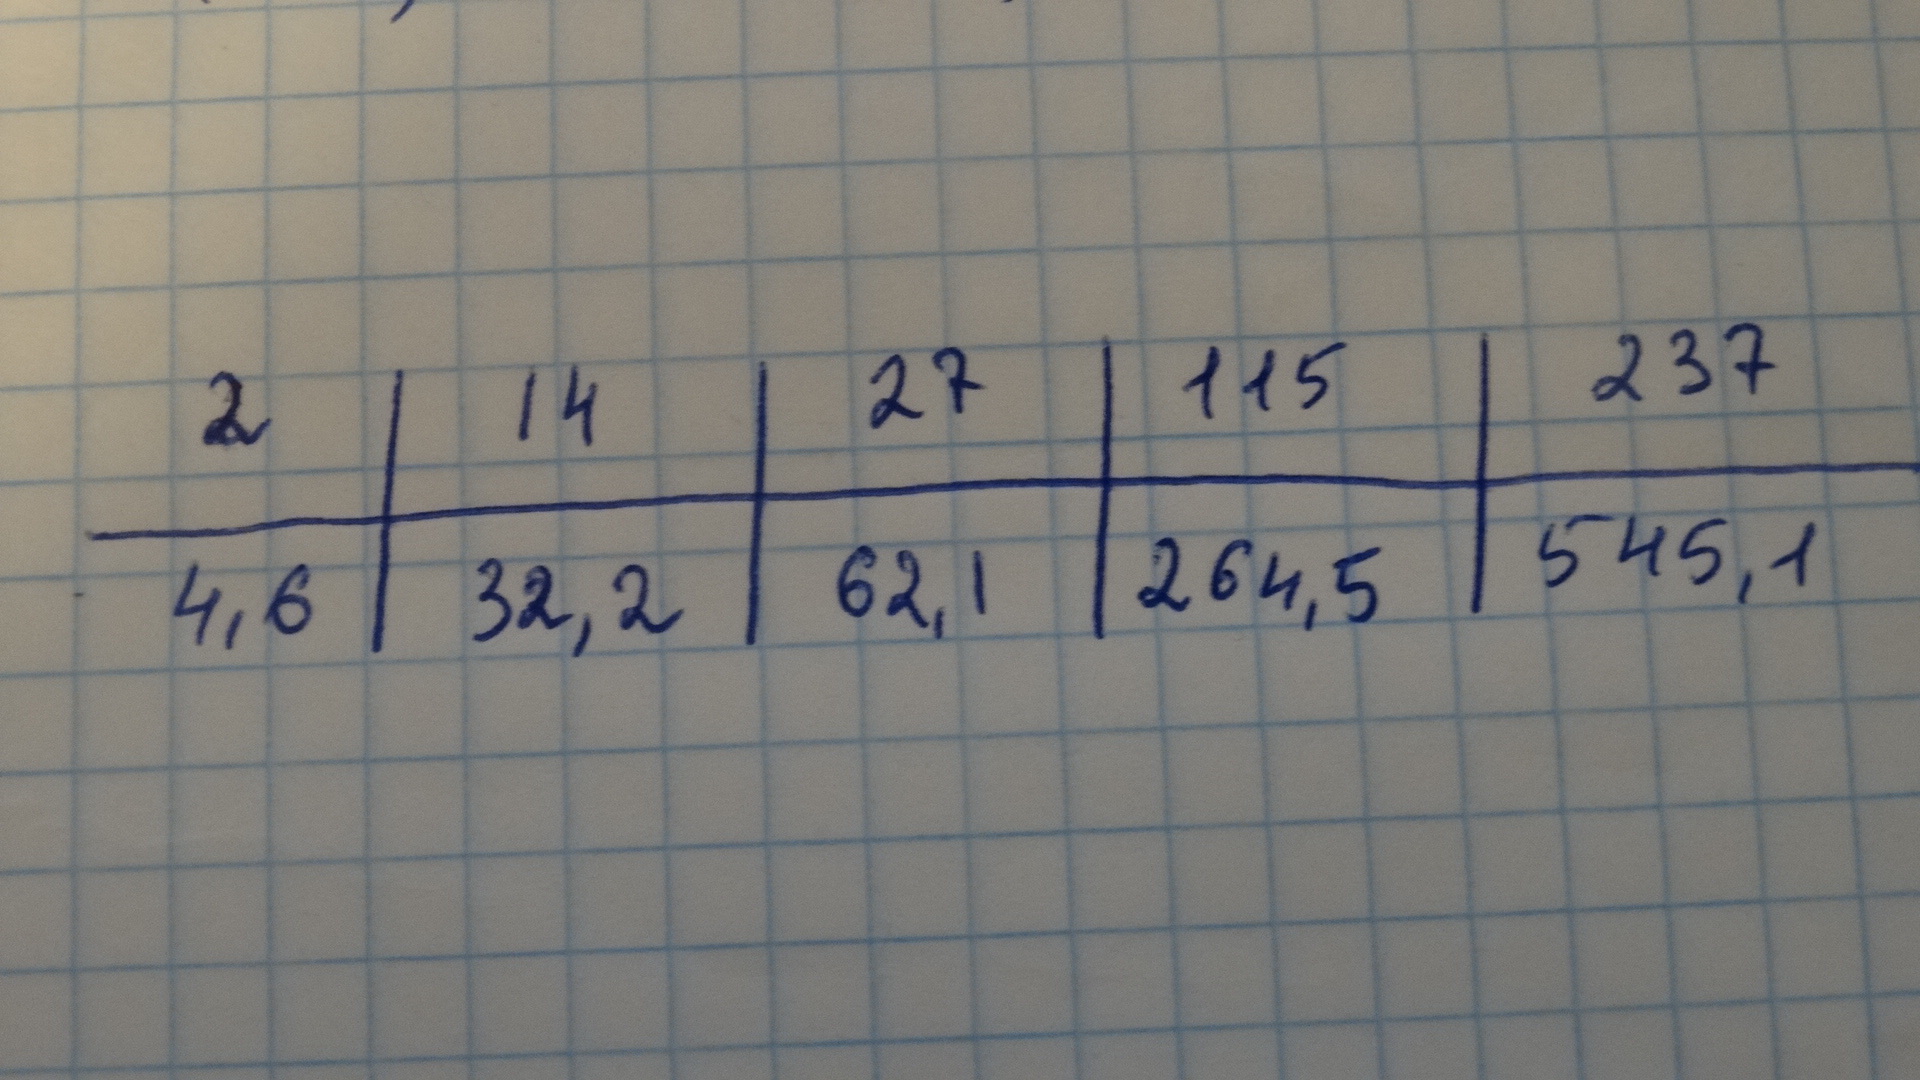 2 14 27 115 237
4,6 32,2 62,1 264,5 545,1